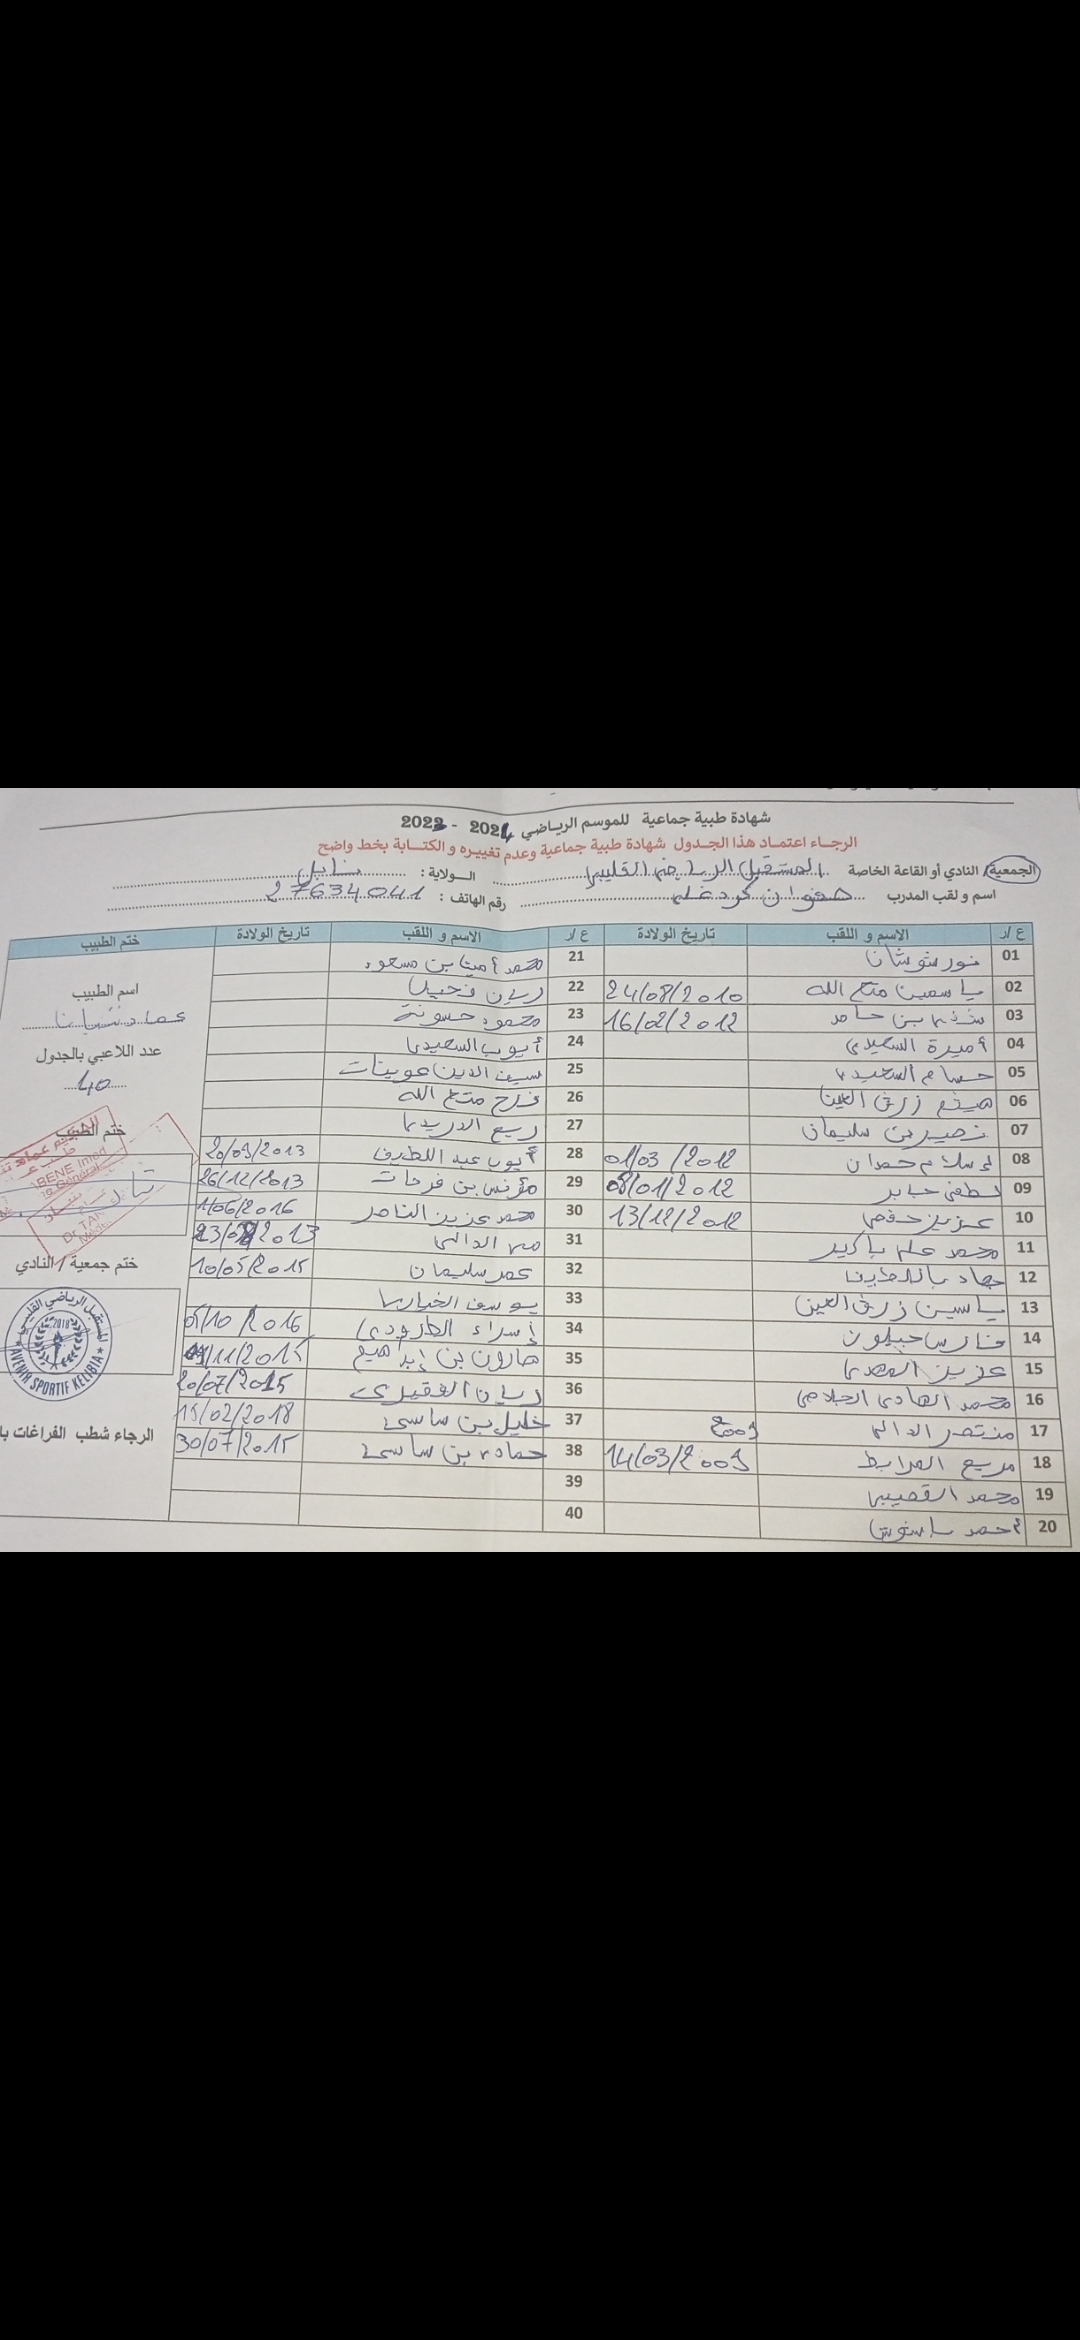 شهادة طبية جماعية للموسم الرياضي 2024 - 2023
الرجاء اعتماد هذا الجدول شهادة طبية جماعية وعدم تغييره و الكتابة بخط واضح
الجمعية/ النادي أو القاعة الخاصة المستقبل الرياضي القليبي الولاية : نابل
اسم و لقب المدرب صفوان كردغلي رقم الهاتف : 27634041
ع /ر الاسم و اللقب تاريخ الولادة ع /ر الاسم و اللقب تاريخ الولادة ختم الطبيب
01 نور شوشان
02 ياسمين متع الله 24/08/2010
03 بن حامد 16/02/2012
04 أميرة السعيدي
05 حسام السعيدي
06 هيثم زرق العين
07 نصير بن سليمان
08 إسلام حمدان 01/03/2012
09 لطفي جابر 08/01/2012
10 عزيز حفص 13/12/2012
11 محمد علي باكير
12 جهاد
13 ياسين زرق العين
14 فارس جبلون
15 عزيز المهدي
16 محمد الهادي الجلاصي
17 منتصر الدالي 2009
18 مريم المرابط 14/03/2009
19 محمد القصيبي
20 أحمد
21 محمد أمين بن مسعود
22 ريان
23 محمود حسونة
24 أيوب السعيدي
25 سيف الدين عوينات
26 فرح متع الله
27 ربيع الدريدي
28 أيوب عبد اللطيف 20/09/2013
29 مؤنس بن فرحات 26/12/2013
30 محمد عزيز الناصر 06/2016
31 الدالي 2013
32 عمر سليمان 10/05/2015
33 يوسف الخياري
34 إسراء الطرودي 05/10/2016
35 هارون بن إبراهيم /11/2015
36 ريان الفقيري 20/07/2015
37 خليل بن ساسي 15/02/2018
38 بن ساسي 30/07/2015
39
40
اسم الطبيب
عماد
عدد اللاعبي بالجدول
40
ختم الطبيب
ختم جمعية / النادي
المستقبل الرياضي القليبي
2018
AVENIR SPORTIF KELIBIA
الرجاء شطب الفراغات